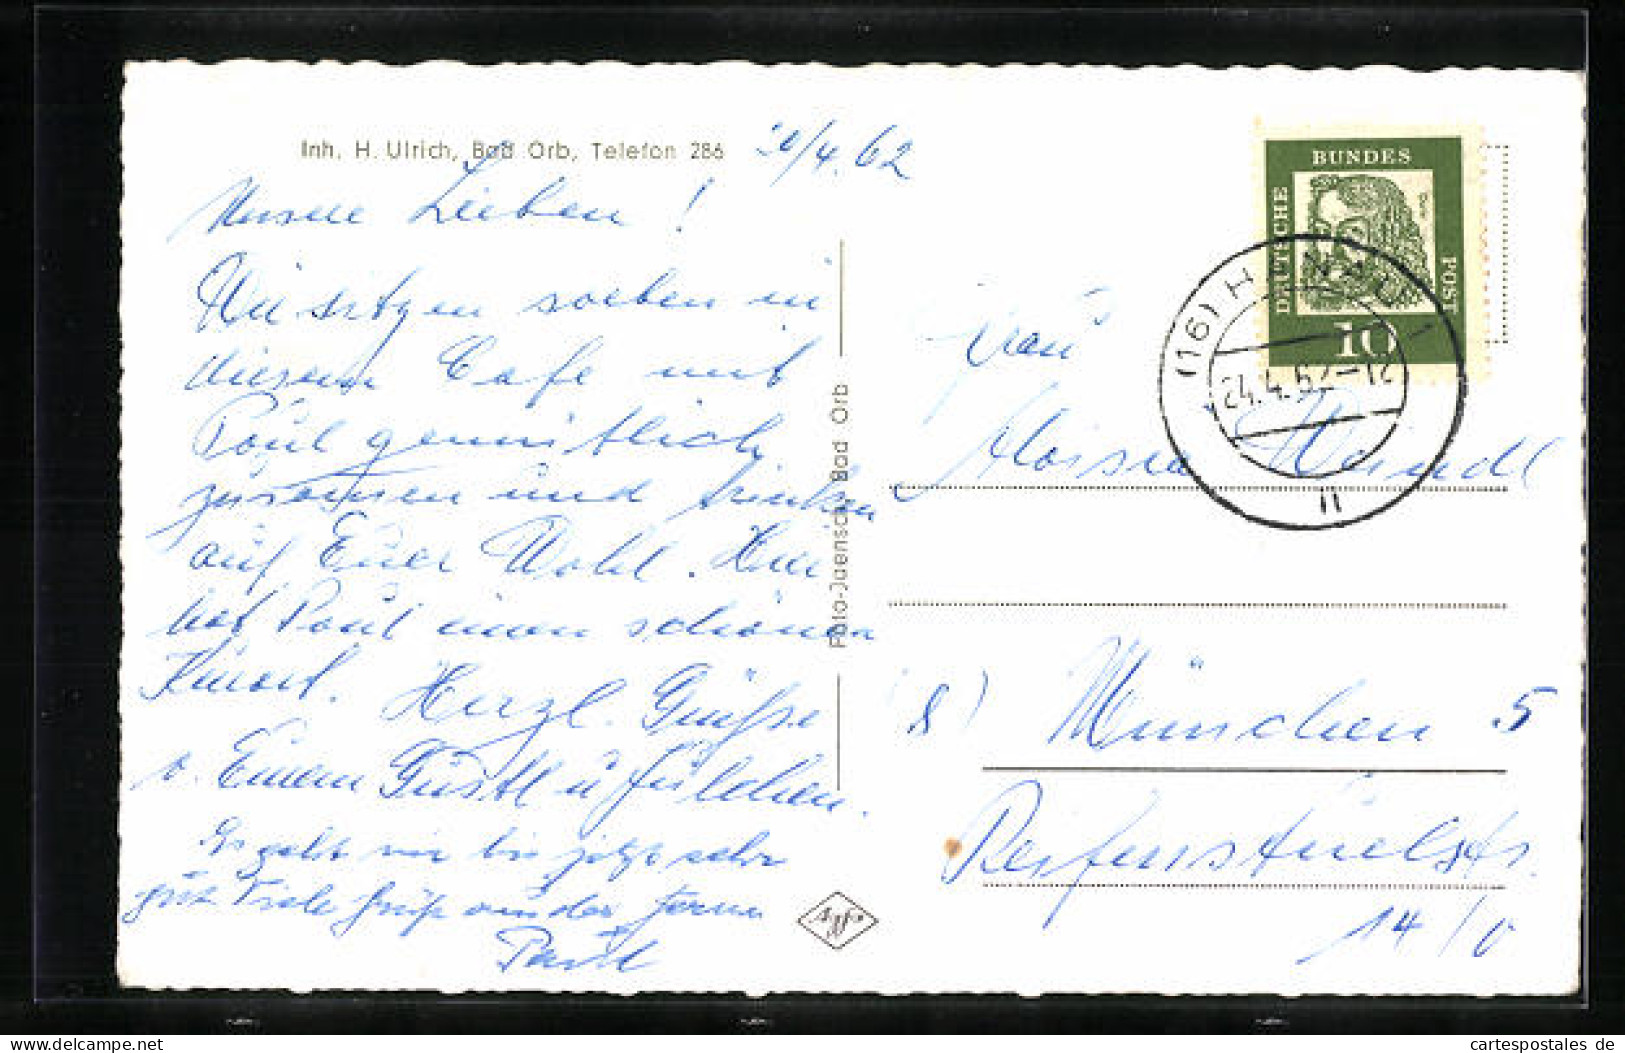 Inh. H. Ulrich, Bad Orb, Telefon 286
/4.62
Unsere Lieben!
Wir sitzen soeben in
diesem Cafe mit
Paul gemütlich
zusammen und trinken
auf Euer Wohl. Hier
hat Paul einen schönen
Kurort. Herzl. Grüße
v. Eurem Gustl u
Es geht mir bis jetzt sehr
gut Viele Grüße aus der Ferne
Paul
Foto-Jaensch, Bad Orb
Agfa
DEUTSCHE
BUNDES
POST
10
Dürer
(16) HANAU
24.4.62-12
II
Frau
Aloisia Weindl
München 5
Reifenstuelstr.
14/0
www.cartespostales.de
cartespostales de